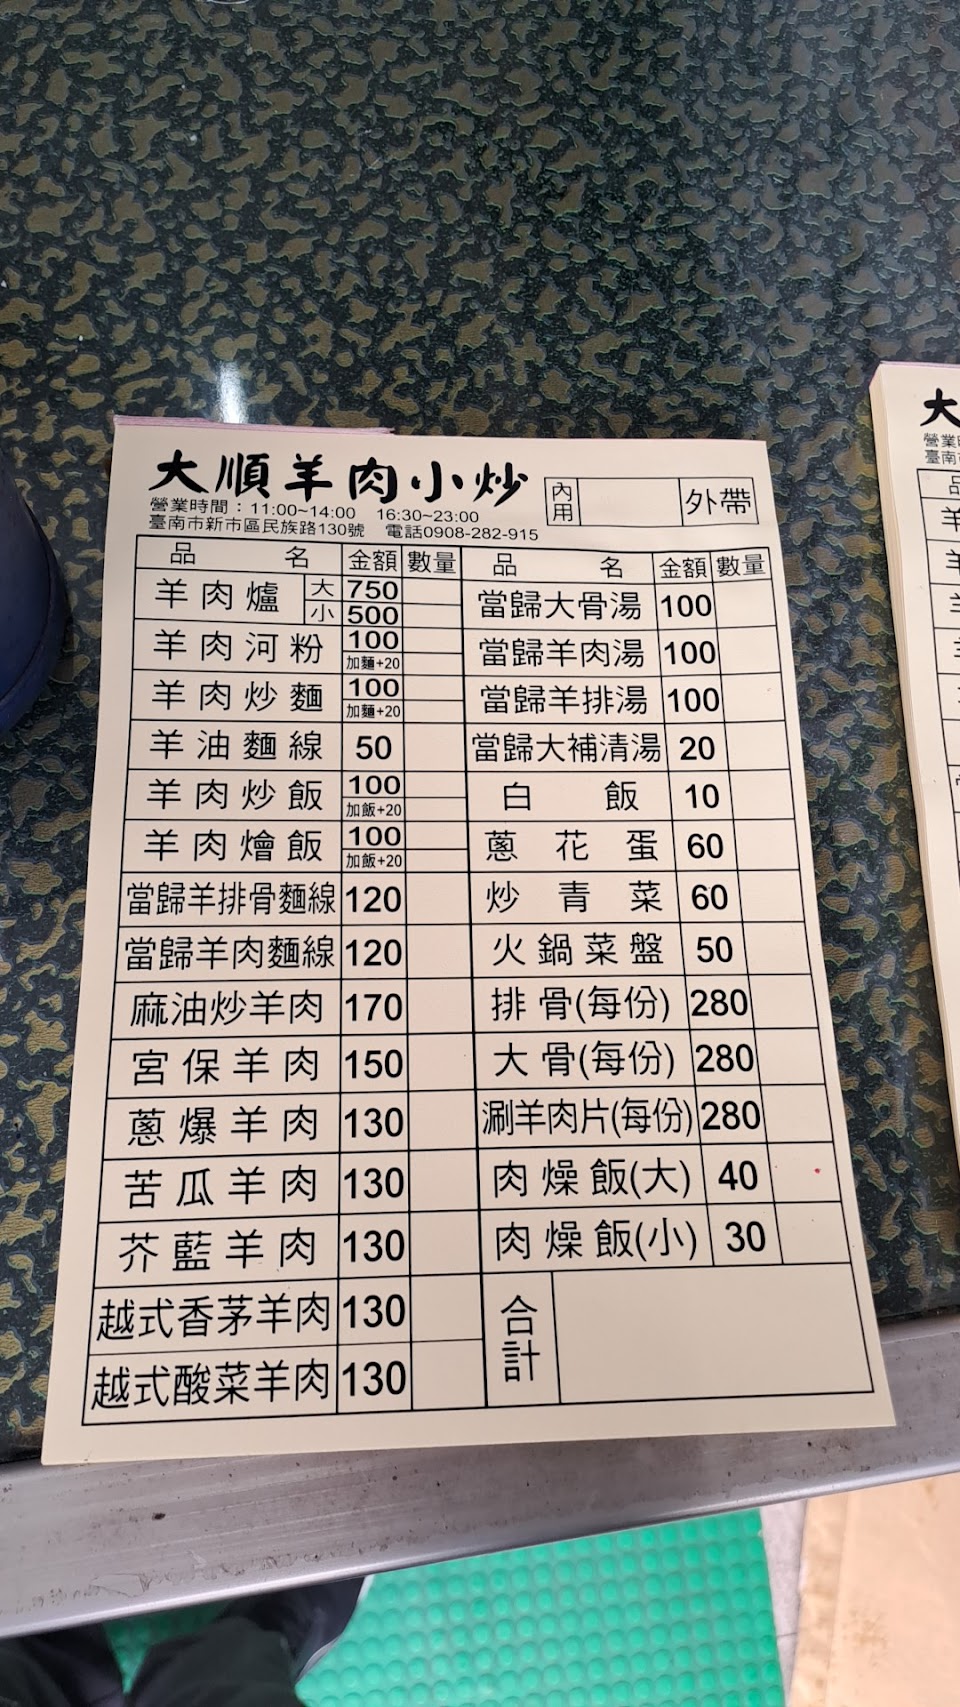 大順羊肉小炒
營業時間：11:00~14:00 16:30~23:00
臺南市新市區民族路130號 電話0908-282-915
內用 外帶
品名 金額 數量
羊肉爐 大 750
小 500
羊肉河粉 100
加麵+20
羊肉炒麵 100
加麵+20
羊油麵線 50
羊肉炒飯 100
加飯+20
羊肉燴飯 100
加飯+20
當歸羊排骨麵線 120
當歸羊肉麵線 120
麻油炒羊肉 170
宮保羊肉 150
蔥爆羊肉 130
苦瓜羊肉 130
芥藍羊肉 130
越式香茅羊肉 130
越式酸菜羊肉 130
品名 金額 數量
當歸大骨湯 100
當歸羊肉湯 100
當歸羊排湯 100
當歸大補清湯 20
白飯 10
蔥花蛋 60
炒青菜 60
火鍋菜盤 50
排骨(每份) 280
大骨(每份) 280
涮羊肉片(每份) 280
肉燥飯(大) 40
肉燥飯(小) 30
合計
大
營業
臺南